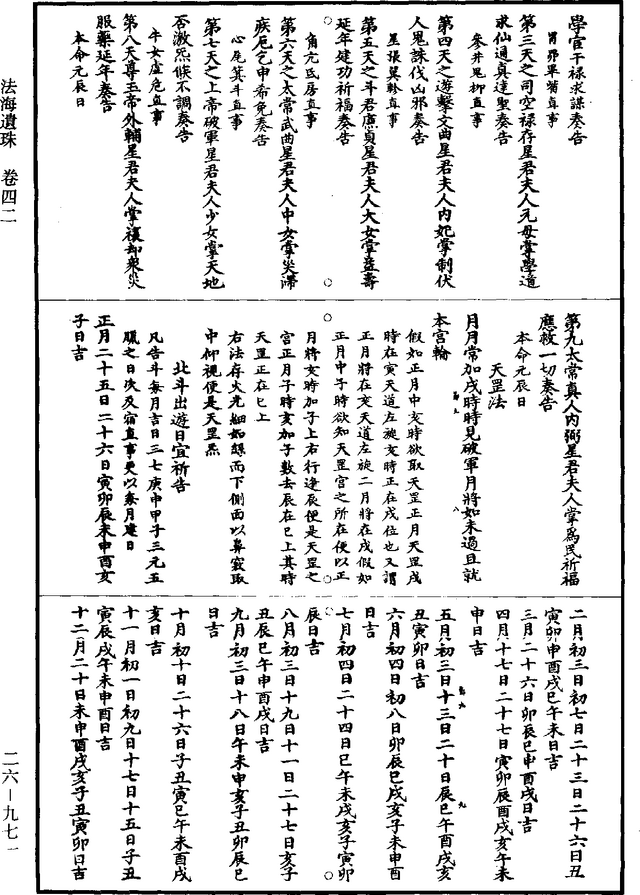 法海遺珠 卷四二
學官干祿求謀奏告
胃昴畢觜直事
第三天之司空祿存星君夫人元母掌學道
求仙通真達聖奏告
參井鬼柳直事
第四天之遊擊文曲星君夫人內妃掌制伏
人鬼誅伐凶邪奏告
星張翼軫直事
第五天之斗君廉貞星君夫人大女掌益壽
延年建功祈福奏告
角亢氐房直事
第六天之太常武曲星君夫人中女掌災滯
疾厄乞申希免奏告
心尾箕斗直事
第七天之上帝破軍星君夫人少女掌天地
否激炁候不調奏告
牛女虛危直事
第八天尊玉帝外輔星君夫人掌禳却衆災
服藥延年奏告
本命元辰日
第九太常真人內弼星君夫人掌為民祈福
應救一切奏告
本命元辰日
天罡法
月月常加戌時時見破軍月將如未過且就
本宮輪
假如正月中亥時欲取天罡正月天罡戌
時在寅天道左旋亥時正在戌位也又謂
正月將在亥天道左旋二月將在戌假如
正月中子時欲知天罡宮之所在便以正
月將亥時加子上右行逢辰便是天罡之
宮正月子時亥加子數去辰在巳上其時
天罡正在巳上
右法存火光細如線而下側面以鼻竅取
中仰視便是天罡炁
北斗出遊日宜祈告
凡告斗每月吉日三七庚申甲子三元五
臘之日次及宿直事更以泰月建日
正月二十五日二十六日寅卯辰未申酉亥
子日吉
二月初三日初七日二十三日二十六日丑
寅卯申酉戌巳午未日吉
三月二十六日卯辰巳申酉戌日吉
四月十七日二十七日寅卯辰酉戌亥午未
申日吉
五月初三日十三日二十日辰巳午酉戌亥
丑寅卯日吉
六月初四日初八日卯辰巳戌亥子未申酉
日吉
七月初四日二十四日巳午未戌亥子寅卯
辰日吉
八月初三日十九日十一日二十七日亥子
丑辰巳午申酉戌日吉
九月初三日十八日午未申亥子丑卯辰巳
日吉
十月初十日二十六日子丑寅巳午未酉戌
亥日吉
十一月初一日初九日十七日十五日子丑
寅辰戌午未申酉日吉
十二月二十日未申酉戌亥子丑寅卯日吉
二六—九七一